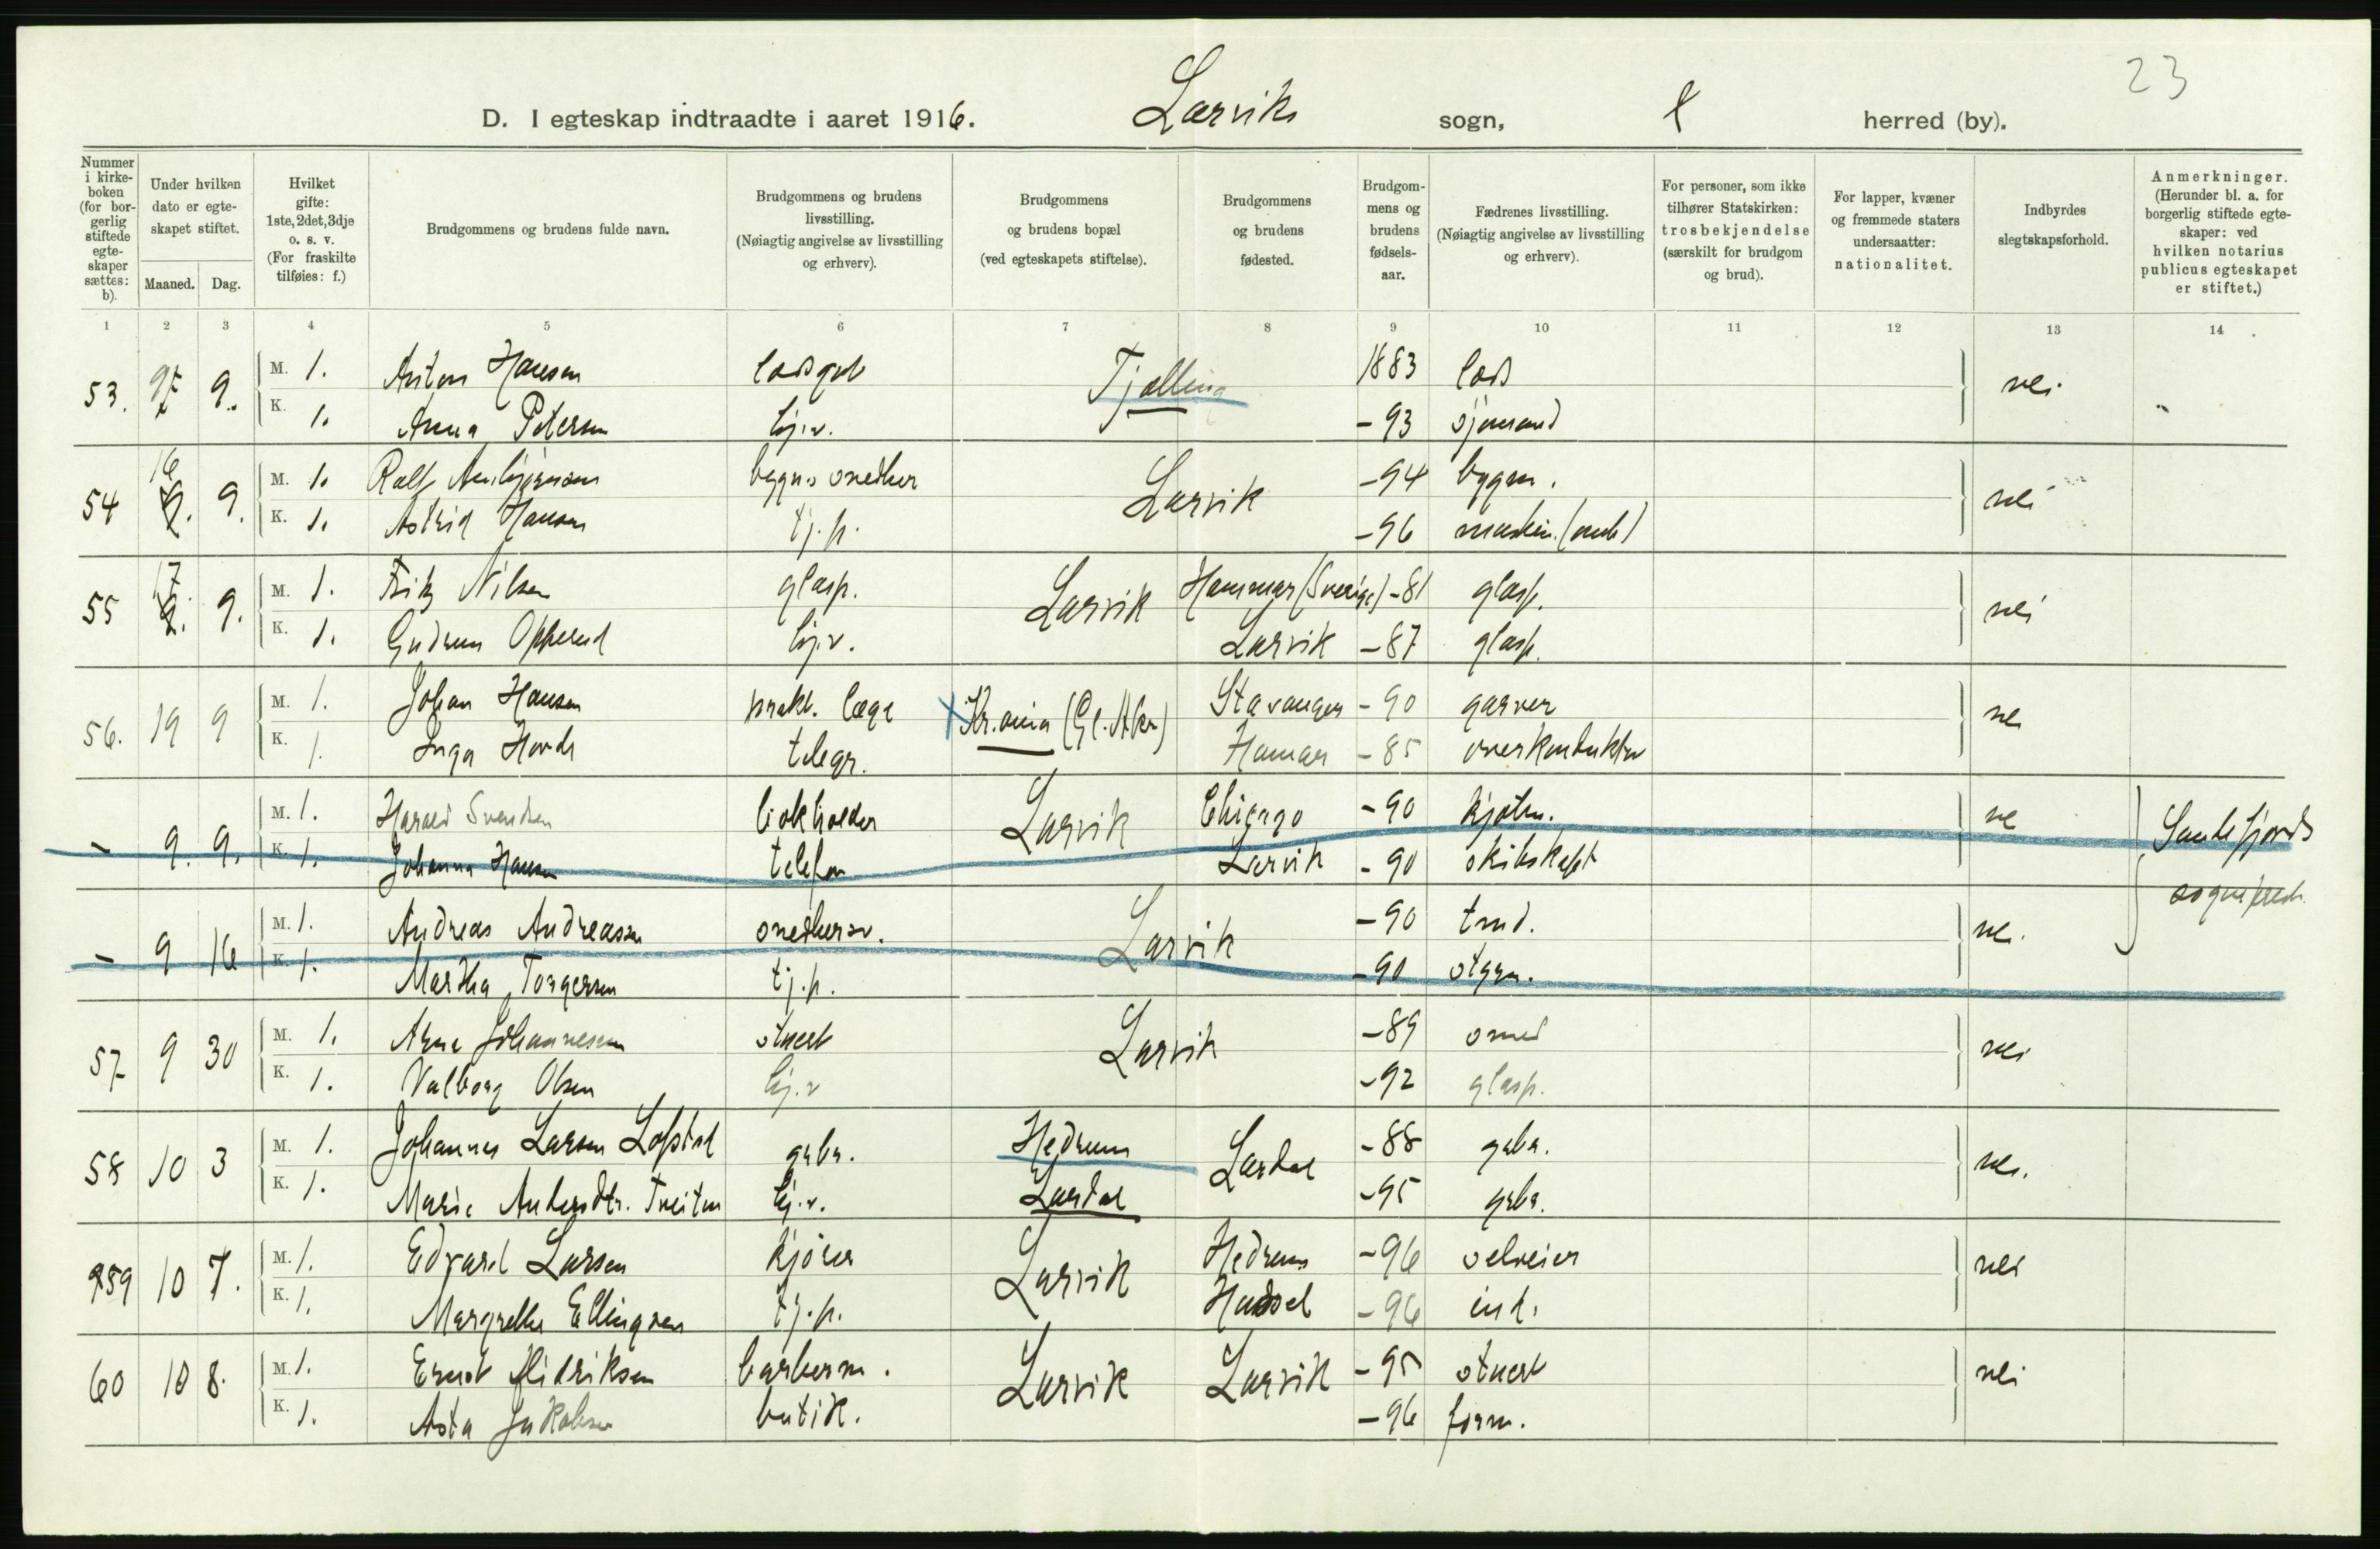 23
D. I egteskap indtraadte i aaret 1916. Larviks sogn, herred (by).
Nummer i kirkeboken (for borgerlig stiftede egteskaper sættes: b).
Under hvilken dato er egteskapet stiftet.
Maaned. Dag.
Hvilket gifte: 1ste, 2det, 3dje o. s. v. (For fraskilte tilføies: f.)
Brudgommens og brudens fulde navn.
Brudgommens og brudens livsstilling. (Nøiagtig angivelse av livsstilling og erhverv).
Brudgommens og brudens bopæl (ved egteskapets stiftelse).
Brudgommens og brudens fødested.
Brudgommens og brudens fødselsaar.
Fædrenes livsstilling. (Nøiagtig angivelse av livsstilling og erhverv).
For personer, som ikke tilhører Statskirken: trosbekjendelse (særskilt for brudgom og brud).
For lapper, kvæner og fremmede staters undersaatter: nationalitet.
Indbyrdes slegtskapsforhold.
Anmerkninger. (Herunder bl. a. for borgerlig stiftede egteskaper: ved hvilken notarius publicus egteskapet er stiftet.)
1 2 3 4 5 6 7 8 9 10 11 12 13 14
53. 9. M. 1. Anton Hansen Tjølling 1883 lods nei
K. 1. Anna Petersen hj.v. -93 sjømand
54 16 9. M. 1. Ralf Larvik -94 bygm. nei
K. 1. Astrid Hansen tj.p. -96
55 17 9. M. 1. Fritz Nilsen glasp. Larvik Hammar (Sverige) -81 glasp. nei
K. 1. Gudrun hj.v. Larvik -87 glasp.
56. 19 9 M. 1. Johan Hansen prakt. læge Kr.ania (Gl. Aker) Stavanger -90 garver nei
K. 1. Inga telegr. Hamar -85 overkonduktør
- 9. 9. M. 1. Harald Svendsen bokholder Larvik Chicago -90 nei Sandefjords
K. 1. Johanna Hansen telefon Larvik -90 skibskapt
- 9 16 M. 1. Andreas Andreassen Larvik -90 tmd. nei.
K. 1. Martha Torgersen tj.p. -90
57 9 30 M. 1. Arne Johannesen stuert Larvik -89 smed nei
K. 1. Valborg Olsen hj.v -92 glasp.
58 10 3 M. 1. Johannes Larsen gabr. Hedrum Lardal -88 gabr. nei.
K. 1. Marie Andersdtr. Tveiten hj.v. Lardal -95 gabr.
59 10 7. M. 1. Edvard Larsen kjører Larvik Hedrum -96 selveier nei
K. 1. Margrethe Ellingsen tj.p. Hadsel -96 ind.
60 10 8. M. 1. Ernst Didriksen barberm. Larvik Larvik -95 stuert nei
K. 1. Asta Jakobsen butik. -96 form.